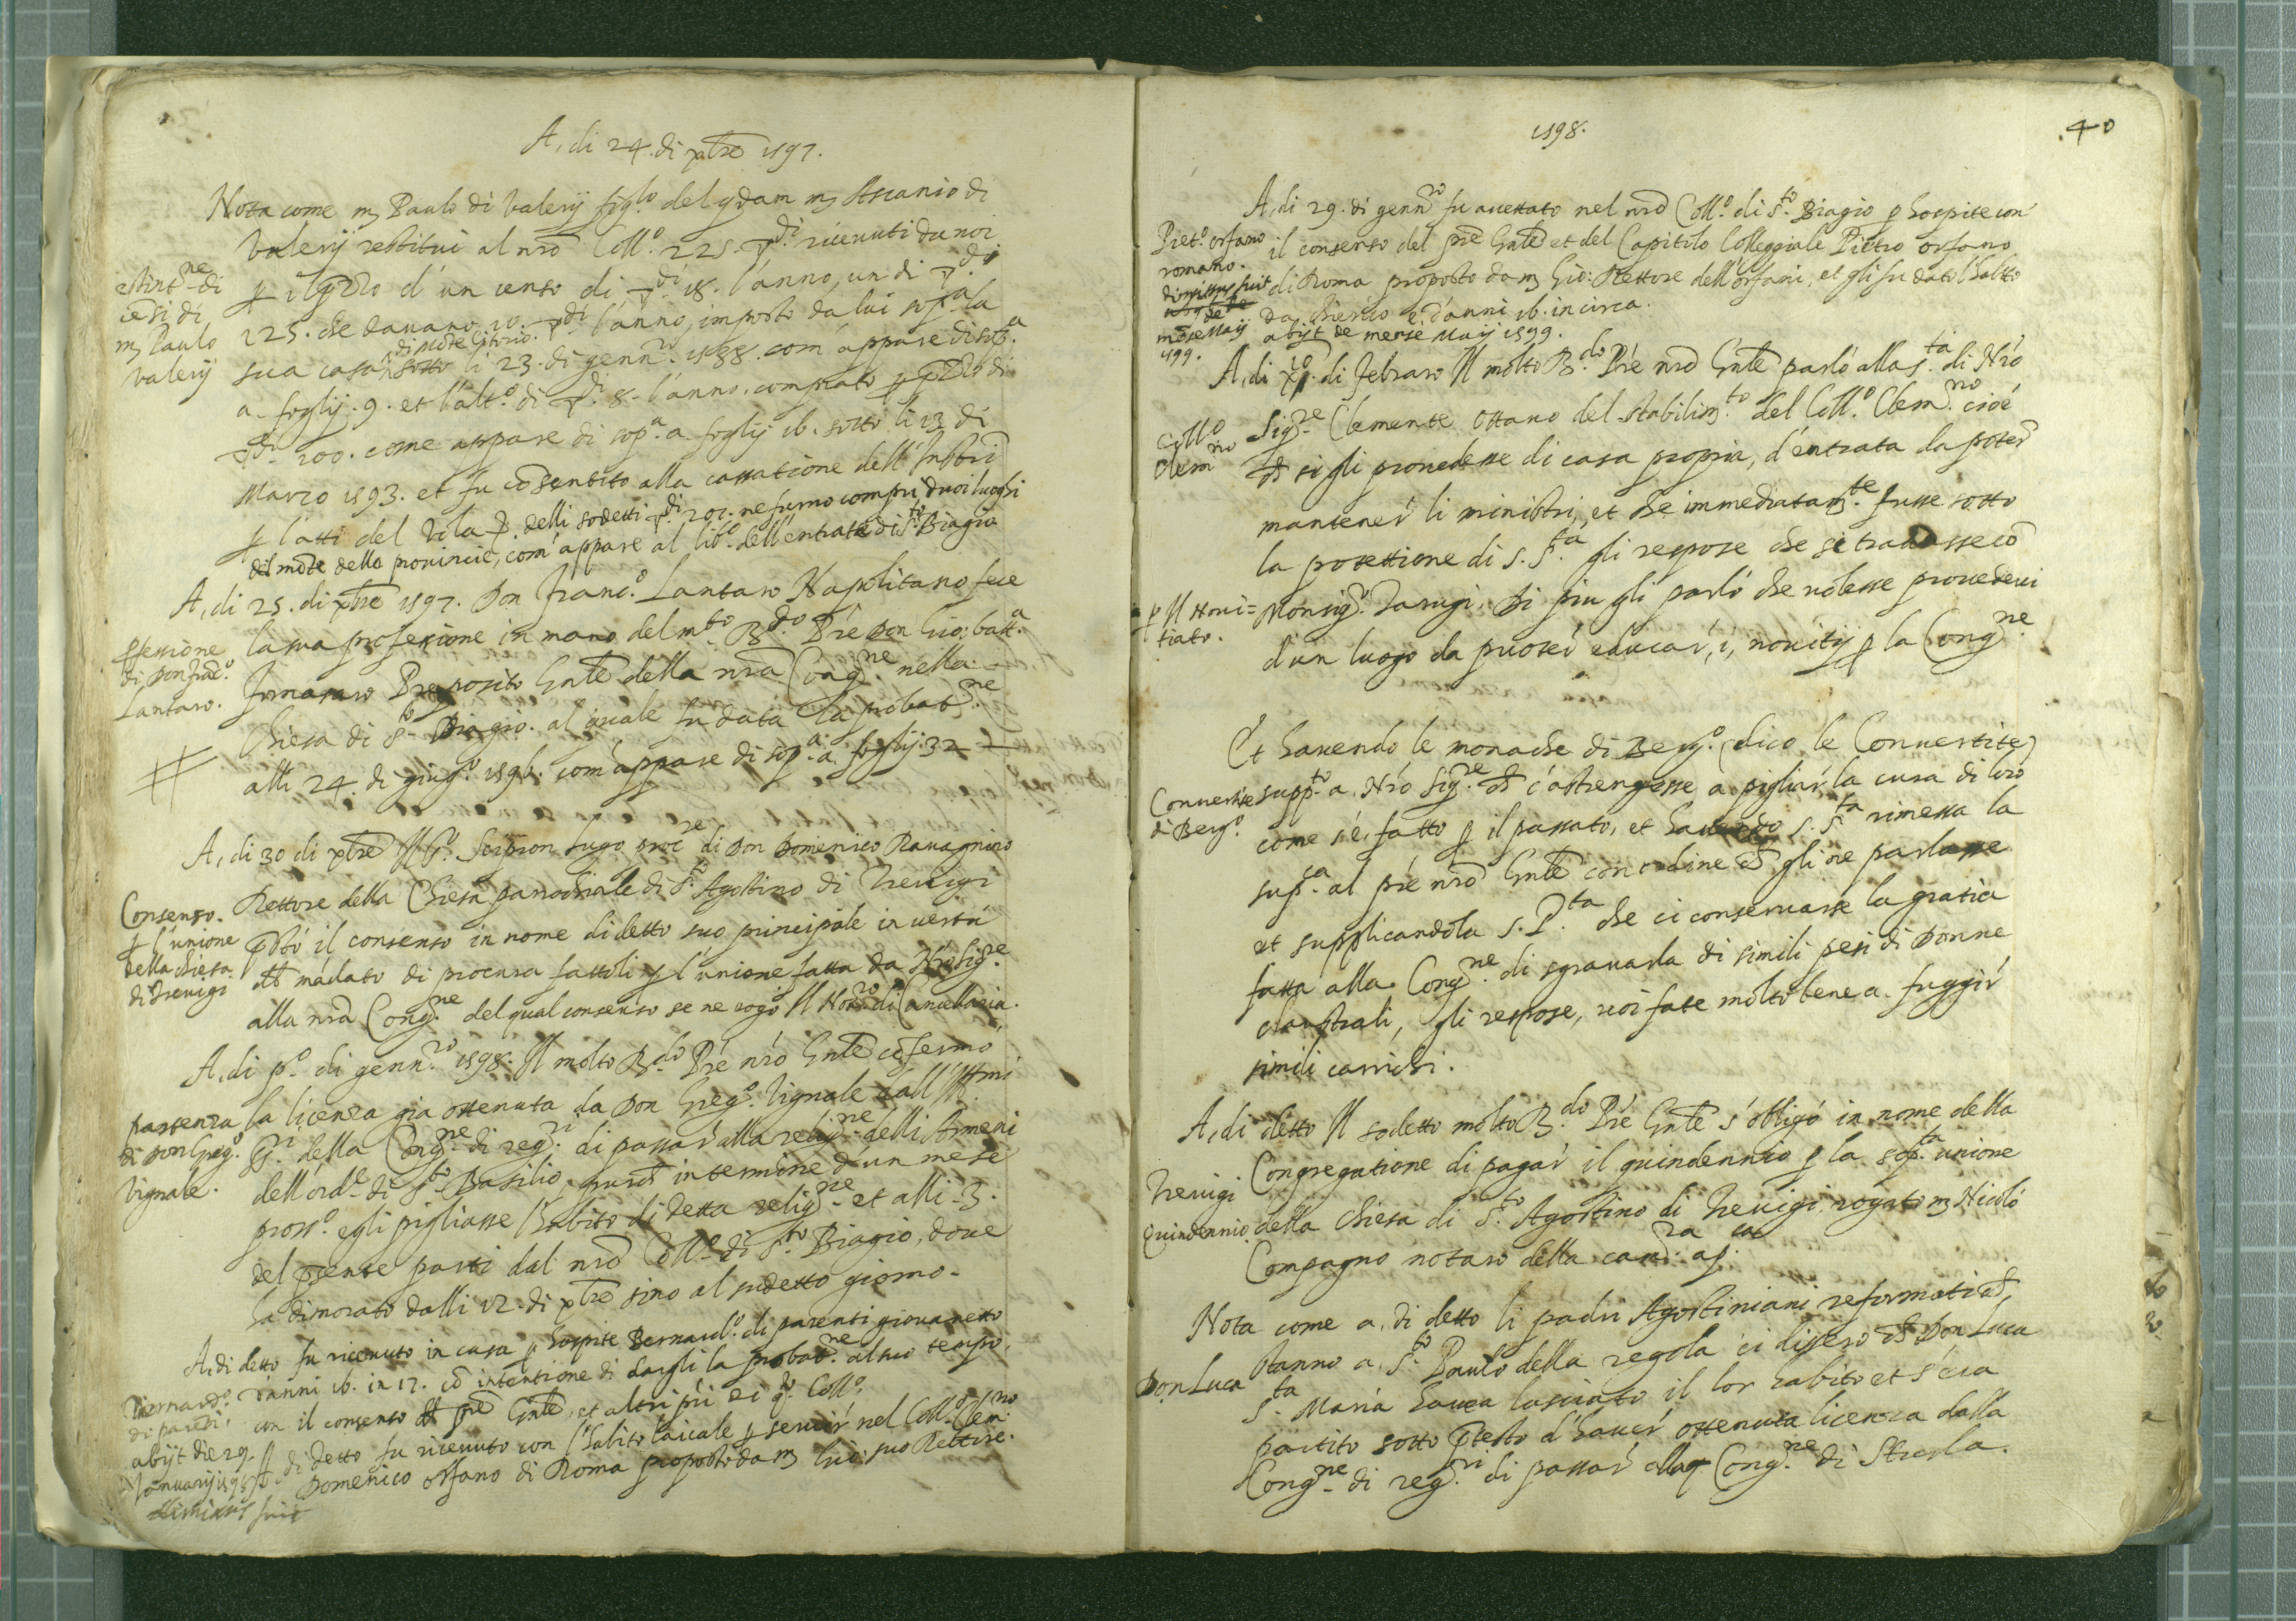 A, di 24. di xbre 1597.
Nota come m Paulo di Valerij fig.lo del qdam m Ascanio di
Valerij restitui al nro Coll.o 225. di ricevuti da noi
estint.ne di
cesi di
m Paulo
valerij
p il d'un censo di di 18. l'anno, un di di
225. che davano 10. di l'anno, imposto da lui sop.a la
di Mote Citorio.
sua casa sotto li 23. di genn.ro 1588. com' appare di sop.a
a foglij. 9. et l'alt.o di di 8. l'anno. comprato p di
di 100. come appare di sop.a a foglij 16. sotto li 13 di
Marzo 1593. et fu cosentito alla cassatione dell'
p l'atti del Vila delli sodetti di 201. ne furno compri duoi luoghi
del mote delle provincie, com' appare al lib.o dell'entrate di S.to Biagio
A, di 25. di xbre 1597. Don Franc.o Lantaro Napolitano fece
pfessione
di Don Frac.o
Lantaro.
la sua professione in mano del m.to R.do Pre Don Gio: batt.a
Fornasaro Preposito Gnle della nra Cong.ne nella
Chiesa di S.to Biagio. al quale fu data la probat.ne
alli 24. di giug.o 1596. com' appare di sop.a a foglij. 32
A, di 30 di xbre Il S.r Scipion lugo proc.re di Don Domenico Ravagnino
Consenso.
p l'unione
della chiesa
di Trevigi
Rettore della Chiesa parrochiale di S.to Agostino di Trevigi
psto il consenso in nome di detto suo principale in vertu
del madato di procura fattoli p l'unione fatta da Nro Sig.re
alla nra Cong.ne del qual consenso se ne rogo Il Not.ro di Cancellaria.
A, di p.o di genn.ro 1598. Il molto R.do Pre nro Gnle cofermo
passenza
di Don Greg.o
Vignale.
la licenza gia ottenuta da Don Greg.o Vignale dall' Ill.mi
SS.ri della Cong.ne di reg.ri di passar alla relig.ne delli Armeni
dell'ord.e di S.to Basilio, purche in termine d'un mese
pross.o egli pigliasse l'habito di detta relig.ne et alli 3.
del psente parti dal nro Coll.o di S.to Biagio, dove
ha dimorato dalli 12. di xbre sino al sudetto giorno.
A, di detto fu ricevuto in casa p hospite Bernard.o di parenti giovanetto
Bernard.o
di pareti.
abijt die 29.
Januarij 1598
dimissus fuit
d'anni 16. in 17. co intentione di dargli la probat.ne al suo tempo.
con il consenso del pre Gnle, et altri pri di q.to Coll.o
A di detto fu ricevuto con l'habito laicale p servir nel Coll.o Clem.no
Domenico orfano di Roma proposto da m Gio: suo Rettore.
1598.
40
A, di 29. di genn.ro fu accettato nel nro Coll.o di S.to Biagio p hospite con
Piet.o orfano
romano.
dimissus fuit
mese Maij
1599.
il consenso del pre Gnle et del Capitolo Colleggiale Pietro orfano
di Roma proposto da m Gio: Rettore dell'orfani, et gli fu dato l'habito
da chierico e d'anni 16. in circa.
abijt de mense Maij 1599.
A, di di Febraro Il molto R.do Pre nro Gnle parlò alla S.ta di Nro
Collo
Clem.no
Sig.re Clemente Ottavo del stabilim.to del Coll.o Clem.no cioé
che si gli provedesse di casa propria, d'entrata da poter
mantener li ministri, et che immediatam.te fusse sotto
la protettione di S. S.ta gli respose che si trattasse co
p Il Novi=
tiato.
Monsig.r Tarugi. Di piu gli parló che volesse provederci
d'un luogo da puoter educar, i, novitij p la Cong.ne
Et havendo le monache di Berg.o (dico le Convertite)
Convertite
di Berg.o
supp.to a Nro Sig.re che c'astrengesse a pigliar la cura di loro
come s'è fatto p il passato, et havendo S. S.ta rimessa la
sup.ca al pre nro Gnle con ordine che gli ne parlasse
et supplicandola S. P.ta che ci conservasse la gratia
fatta alla Cong.ne di sgravarla di simili pesi di Donne
claustrali, gli respose, voi fate molto bene a fuggir
simili carrichi.
A, di detto Il sodetto molto R.do Pre Gnle s'obligó in nome della
Trevigi
Quindennio
Congregatione di pagar il quindennio p la sop.ta unione
della chiesa di S.to Agostino di Trevigi, rogato m Nicoló
Compagno notaro della cam.ra ap.ca
Nota come a, di detto li padri Agostiniani reformati che
Don Luca
stanno a S.to Paulo della regola ci dissero che Don Luca
S.ta Maria havea lasciato il lor habito et s'era
partito sotto ptesto d'haver ottenuta licenza dalla
Cong.ne di reg.ri di passar alla Cong.ne di Strada.